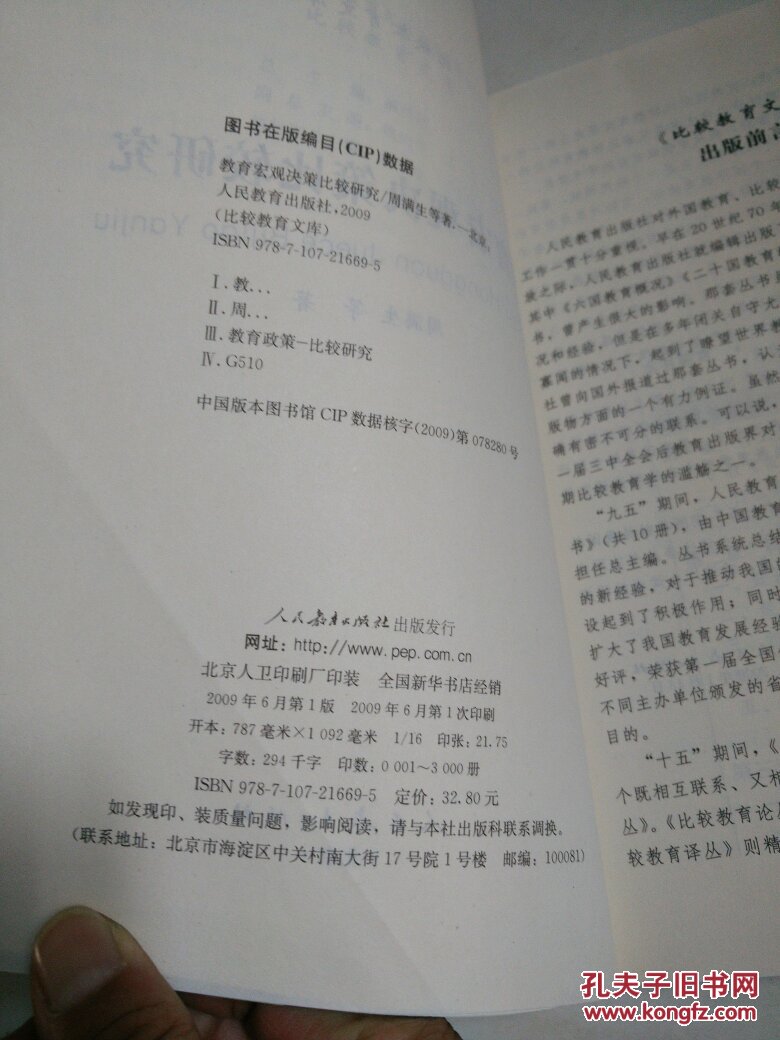 图书在版编目(CIP)数据
教育宏观决策比较研究/周满生等著.—北京:
人民教育出版社,2009
(比较教育文库)
ISBN 978-7-107-21669-5
Ⅰ.教…
Ⅱ.周…
Ⅲ.教育政策-比较研究
Ⅳ.G510
中国版本图书馆CIP数据核字(2009)第078280号
人民教育出版社 出版发行
网址:http://www.pep.com.cn
北京人卫印刷厂印装 全国新华书店经销
2009年6月第1版 2009年6月第1次印刷
开本:787毫米×1 092毫米 1/16 印张:21.75
字数:294千字 印数:0 001~3 000册
ISBN 978-7-107-21669-5 定价:32.80元
如发现印、装质量问题,影响阅读,请与本社出版科联系调换。
(联系地址:北京市海淀区中关村南大街17号院1号楼 邮编:100081)
《比较教育文
出版前言
人民教育出版社对外国教育、比较
工作一贯十分重视。早在20世纪70年
放之际,人民教育出版社就编辑出版
其中《六国教育概况》《二十国教育
书,曾产生很大的影响。那套丛书
况和经验,但是在多年闭关自守尤
寡闻的情况下,起到了瞭望世界教
社曾向国外报道过那套丛书,认
版物方面的一个有力例证。虽然
确有密不可分的联系。可以说,
一届三中全会后教育出版界对
期比较教育学的滥觞之一。
“九五”期间,人民教育
书》(共10册),由中国教育
担任总主编。丛书系统总结
的新经验,对于推动我国
设起到了积极作用;同时
扩大了我国教育发展经验
好评,荣获第一届全国
不同主办单位颁发的省
目的。
“十五”期间,《
个既相互联系、又相
丛》。《比较教育论
较教育译丛》则精
孔夫子旧书网
www.kongfz.com